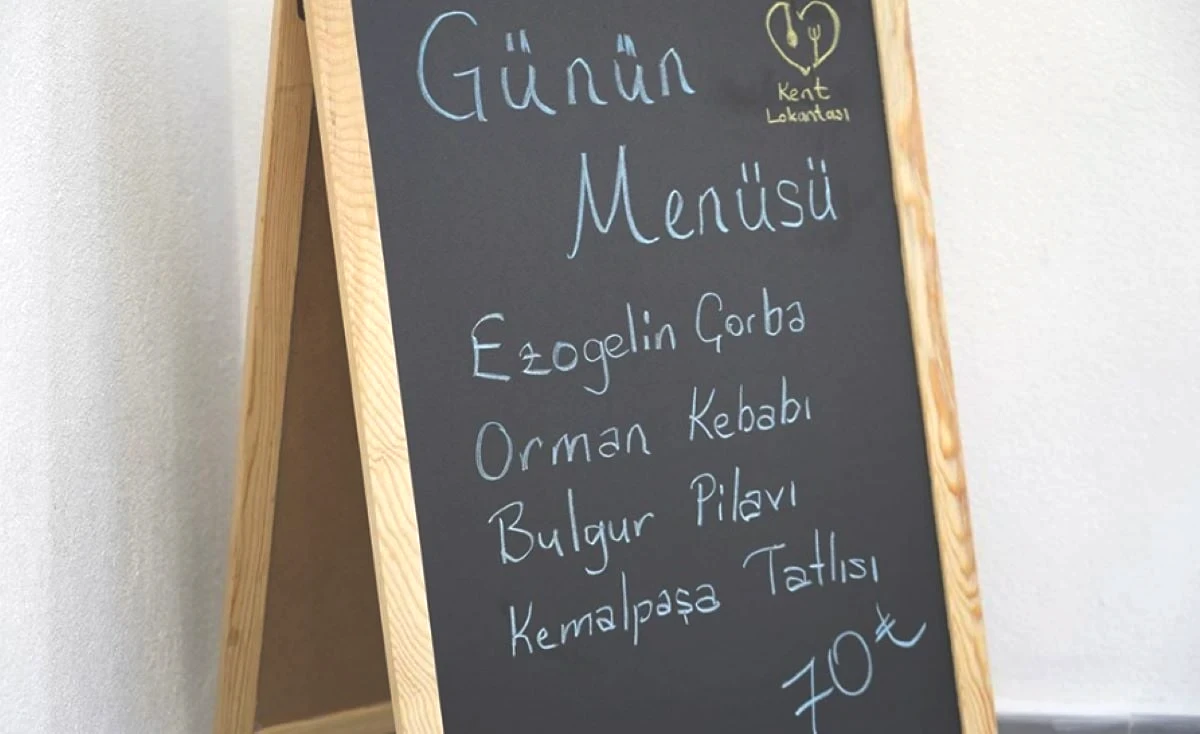 Günün
Kent
Lokantası
Menüsü
Ezogelin Çorba
Orman Kebabı
Bulgur Pilavı
Kemalpaşa Tatlısı
70₺